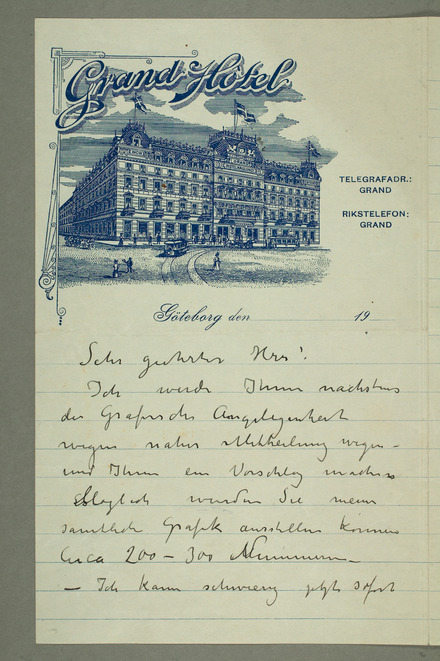 Grand Hotel
TELEGRAFADR.:
GRAND
RIKSTELEFON:
GRAND
Göteborg den 19
Sehr geehrter Herr!
Ich werde Ihnen nächstens
der Grafische Angelegenheit
wegen naher Mittheilung
und Ihnen ein Vorschlag machen
werden Sie meine
samtliche Grafik ausstellen können
Circa 200 – 300 Nummern –
– Ich kann schwierig jetzt sofort